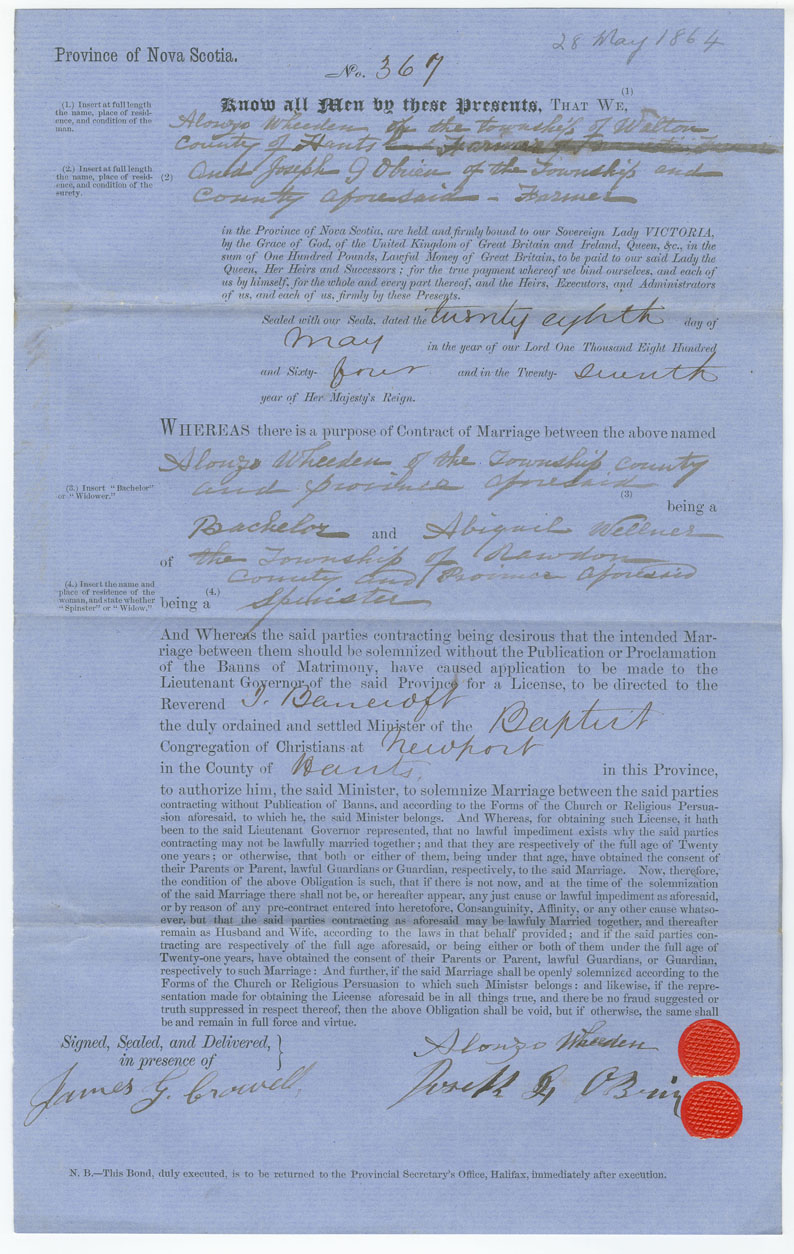 28 May 1864
Province of Nova Scotia.
No. 367
(1)
Know all Men by these Presents, THAT WE,
(1.) Insert at full length
the name, place of resid-
ence, and condition of the
man.
Alonzo Wheeden of the township of Walton
County of Hants and Farmer
(2.) Insert at full length
the name, place of resid-
ence, and condition of the
surety.
(2) And Joseph G Obrien of the Township and
County aforesaid - Farmer
in the Province of Nova Scotia, are held and firmly bound to our Sovereign Lady VICTORIA,
by the Grace of God, of the United Kingdom of Great Britain and Ireland, Queen, &c., in the
sum of One Hundred Pounds, Lawful Money of Great Britain, to be paid to our said Lady the
Queen, Her Heirs and Successors ; for the true payment whereof we bind ourselves, and each of
us by himself, for the whole and every part thereof, and the Heirs, Executors, and Administrators
of us, and each of us, firmly by these Presents.
Sealed with our Seals, dated the twenty eighth day of
May in the year of our Lord One Thousand Eight Hundred
and Sixty- four and in the Twenty- seventh
year of Her Majesty's Reign.
WHEREAS there is a purpose of Contract of Marriage between the above named
Alonzo Wheeden of the Township county
and province aforesaid
(3.) Insert "Bachelor"
or "Widower."
(3)
being a
Bachelor and Abigail Wellner
of the Township of Rawdon
County and Province aforesaid
(4.) Insert the name and
place of residence of the
woman, and state whether
"Spinster" or "Widow."
(4.)
being a Spinster
And Whereas the said parties contracting being desirous that the intended Mar-
riage between them should be solemnized without the Publication or Proclamation
of the Banns of Matrimony, have caused application to be made to the
Lieutenant Governor of the said Province for a License, to be directed to the
Reverend J. Bancroft
the duly ordained and settled Minister of the Baptist
Congregation of Christians at Newport
in the County of Hants, in this Province,
to authorize him, the said Minister, to solemnize Marriage between the said parties
contracting without Publication of Banns, and according to the Forms of the Church or Religious Persua-
sion aforesaid, to which he, the said Minister belongs. And Whereas, for obtaining such License, it hath
been to the said Lieutenant Governor represented, that no lawful impediment exists why the said parties
contracting may not be lawfully married together ; and that they are respectively of the full age of Twenty
one years ; or otherwise, that both or either of them, being under that age, have obtained the consent of
their Parents or Parent, lawful Guardians or Guardian, respectively, to the said Marriage. Now, therefore,
the condition of the above Obligation is such, that if there is not now, and at the time of the solemnization
of the said Marriage there shall not be, or hereafter appear, any just cause or lawful impediment as aforesaid,
or by reason of any pre-contract entered into heretofore, Consanguinity, Affinity, or any other cause whatso-
ever, but that the said parties contracting as aforesaid may be lawfuly Married together, and thereafter
remain as Husband and Wife, according to the laws in that behalf provided ; and if the said parties con-
tracting are respectively of the full age aforesaid, or being either or both of them under the full age of
Twenty-one years, have obtained the consent of their Parents or Parent, lawful Guardians, or Guardian,
respectively to such Marriage : And further, if the said Marriage shall be openly solemnized according to the
Forms of the Church or Religious Persuasion to which such Minister belongs : and likewise, if the repre-
sentation made for obtaining the License aforesaid be in all things true, and there be no fraud suggested or
truth suppressed in respect thereof, then the above Obligation shall be void, but if otherwise, the same shall
be and remain in full force and virtue.
Signed, Sealed, and Delivered,
in presence of
Alonzo Wheeden
James G. Crowell
Joseph G OBrien
N. B.—This Bond, duly executed, is to be returned to the Provincial Secretary's Office, Halifax, immediately after execution.